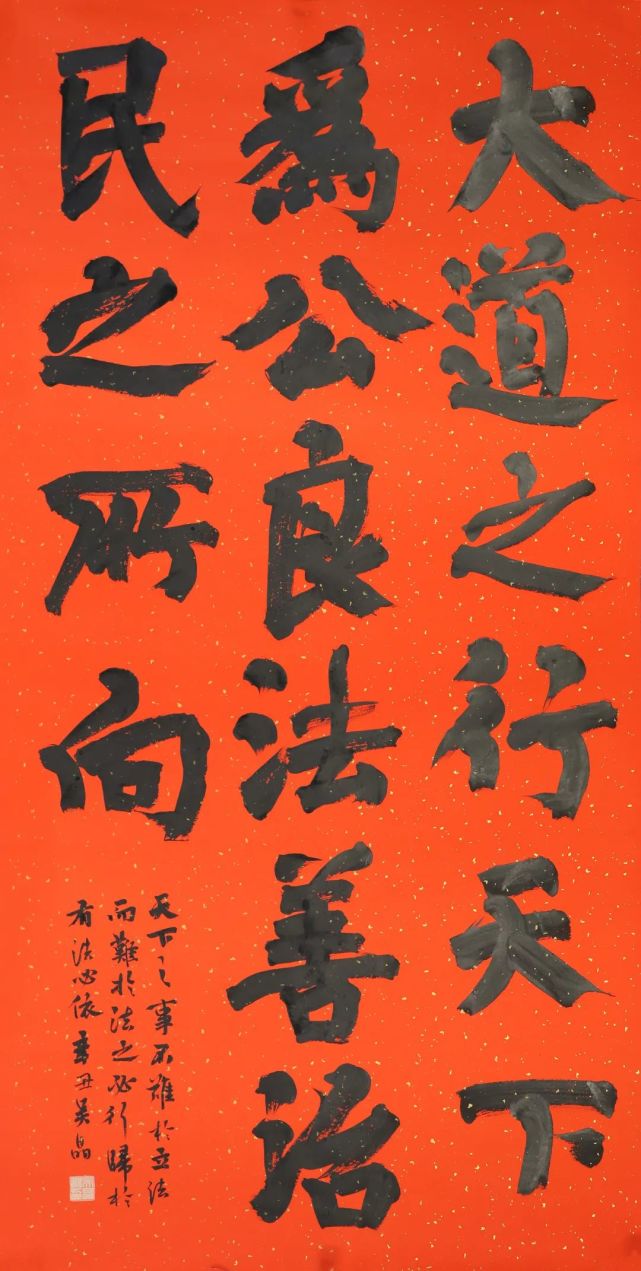 大道之行天下
爲公良法善治
民之所向
天下之事不難於立法
而難於法之必行歸於
有法必依 辛丑吴晶